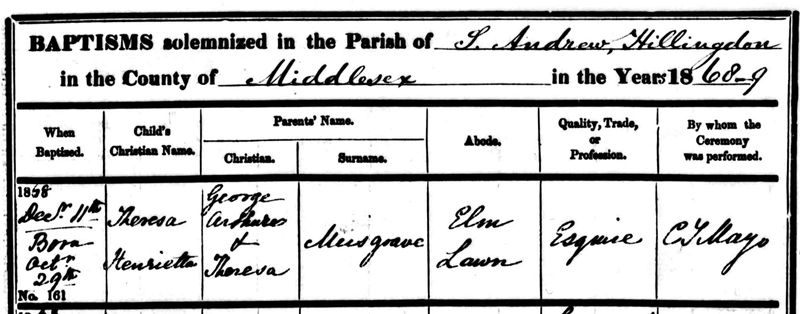 BAPTISMS solemnized in the Parish of S. Andrew, Hillingdon
in the County of Middlesex in the Years 1868-9
When Baptized.
Child's Christian Name.
Parents' Name.
Christian.
Surname.
Abode.
Quality, Trade, or Profession.
By whom the Ceremony was performed.
1868
Decr. 11th
Born
Octr.
29th
No. 161
Theresa
Henrietta
George
Arthur
&
Theresa
Musgrave
Elm
Lawn
Esquire
C J Mayo